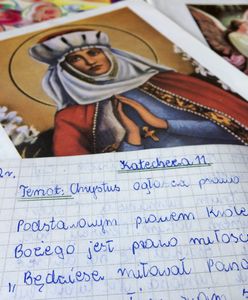 Katecheza 11
Temat: Chrystus ogłasza prawo
Podstawowym prawem Króle
Bożego jest prawo miłośc
1) Będziesz miłował Pana